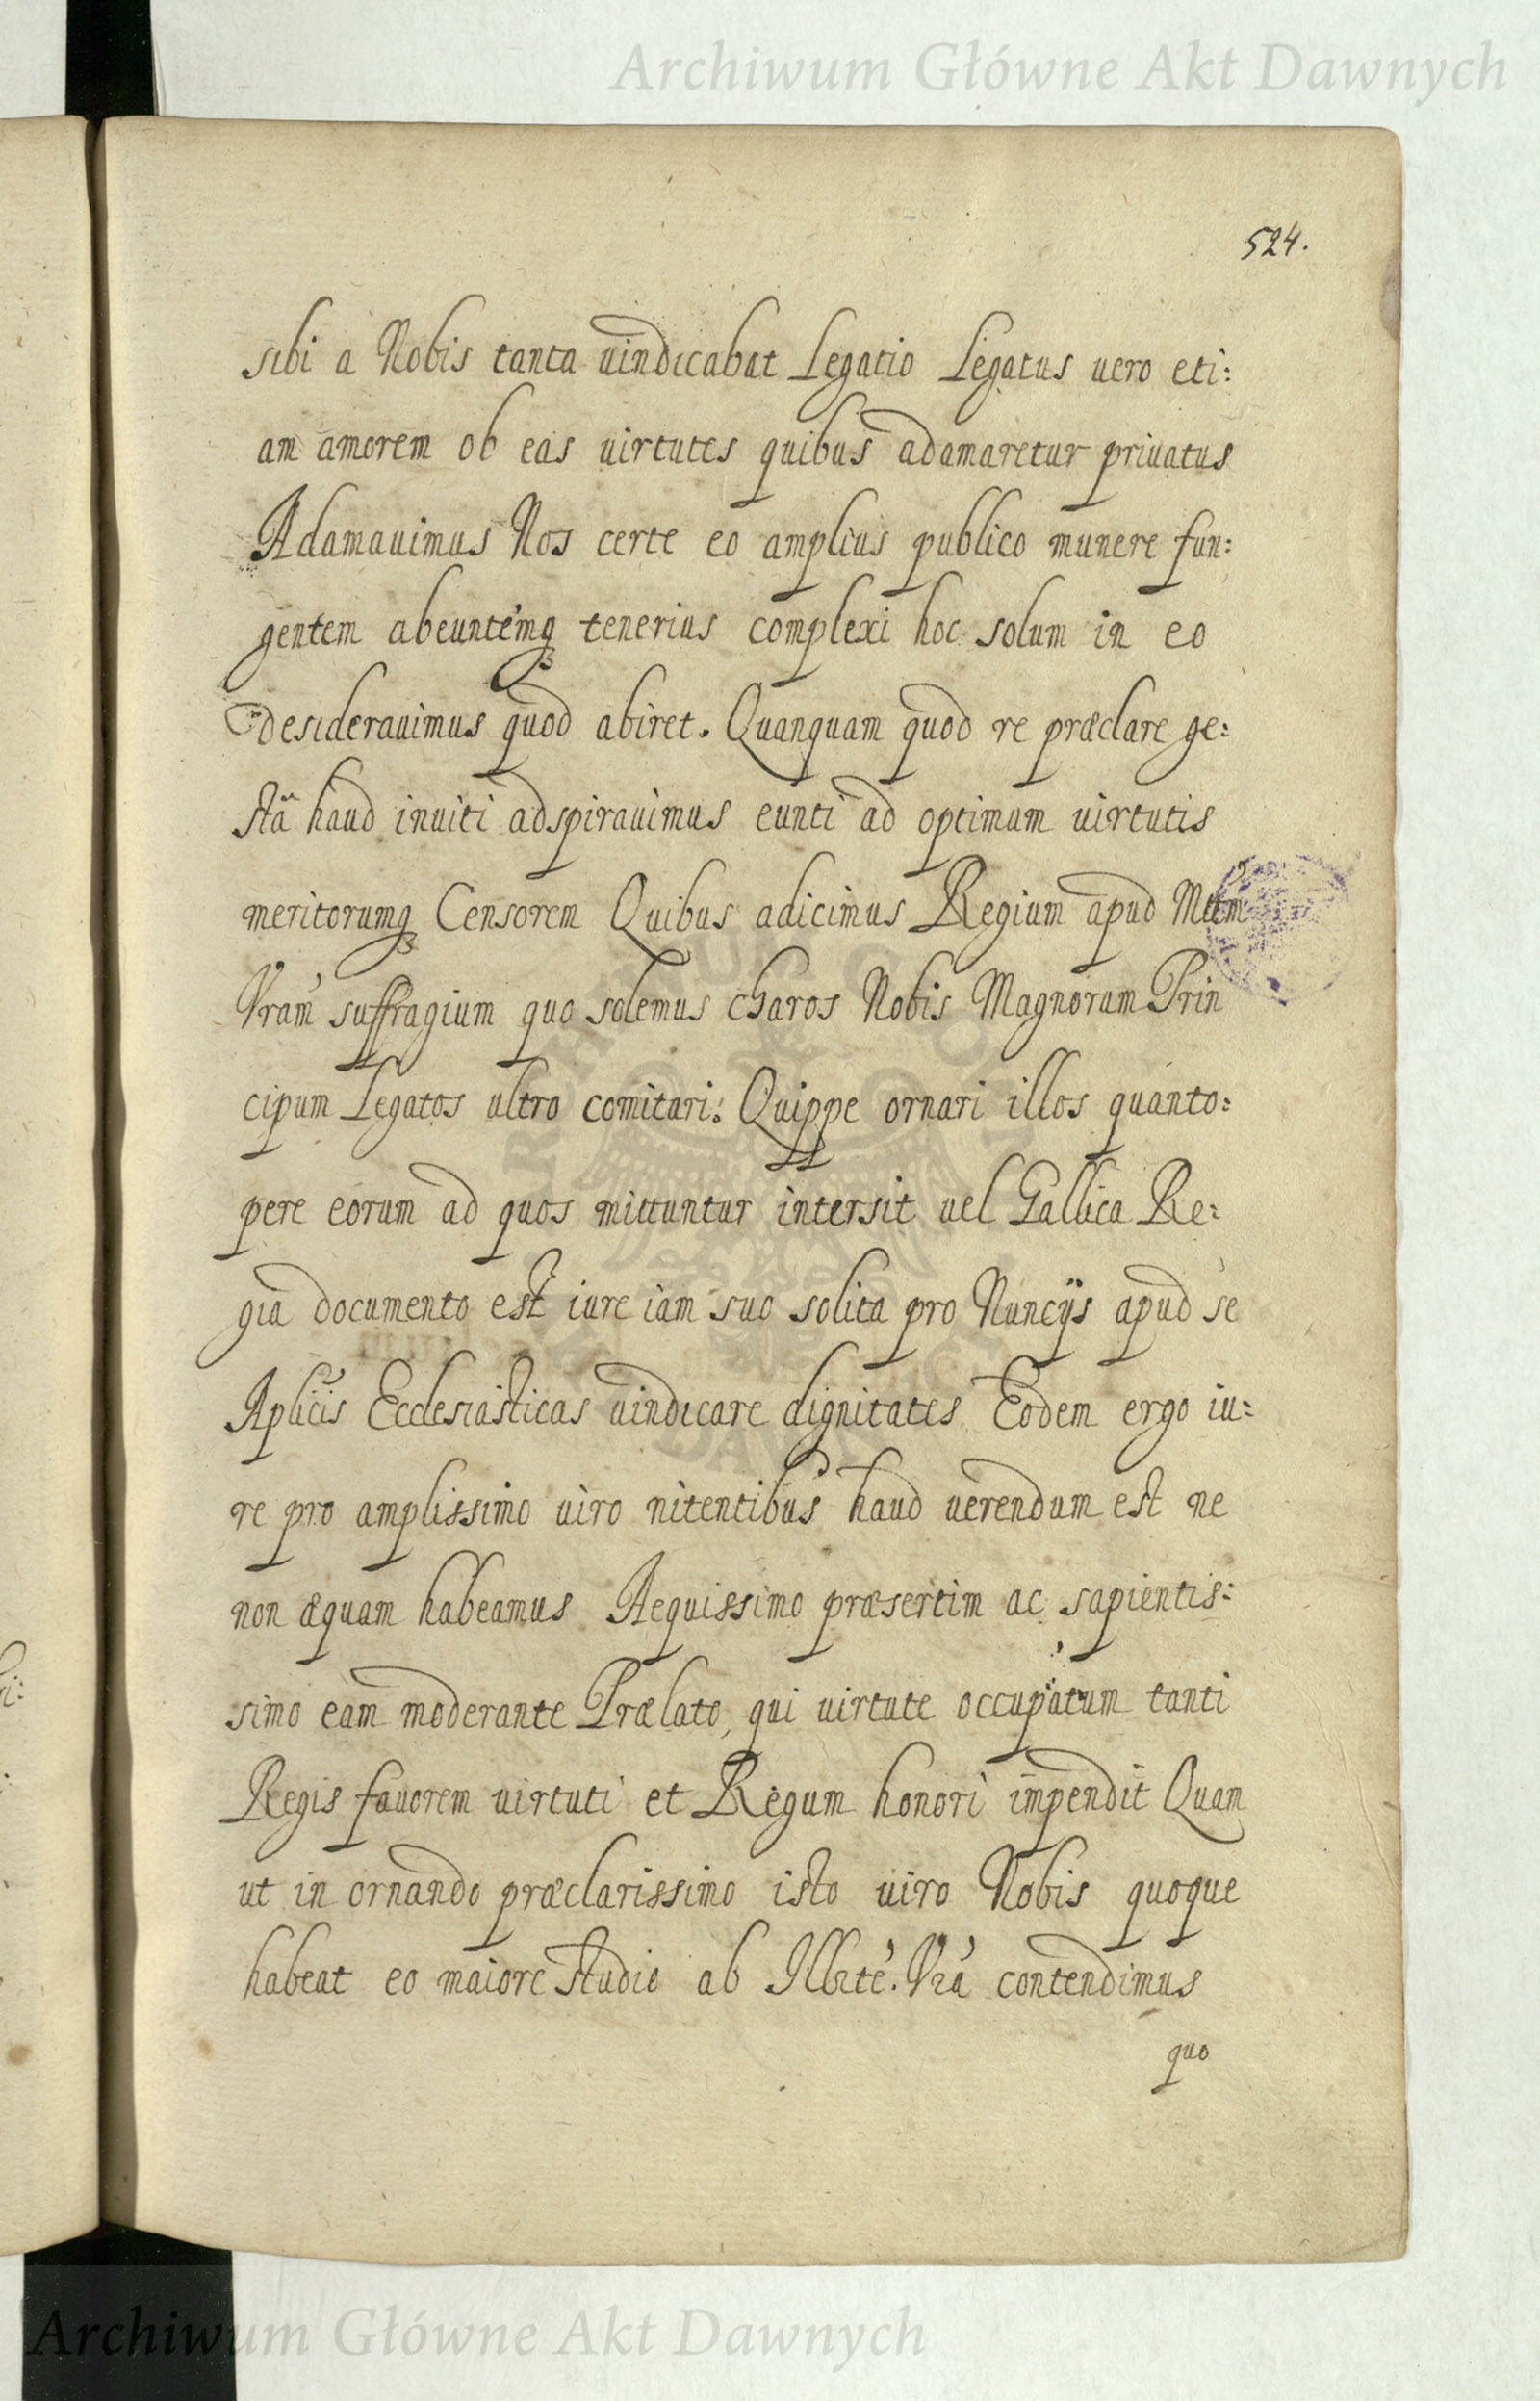 Archiwum Główne Akt Dawnych
524.
sibi a Nobis tanta uindicabat Legatio Legatus uero eti:
am amorem ob eas uirtutes quibus adamaretur priuatus
Adamauimus Nos certe eo amplius publico munere fun:
gentem abeuntemq₃ tenerius complexi hoc solum in eo
desiderauimus quod abiret. Quanquam quod re præclare ge:
sta haud inuiti adspirauimus eunti ad optimum uirtutis
meritorumq₃ Censorem Quibus adicimus Regium apud
Vram suffragium quo solemus charos Nobis Magnorum Prin
cipum Legatos ultro comitari. Quippe ornari illos quanto:
pere eorum ad quos mittuntur intersit uel Gallica Re:
gia documento est iure iam suo solita pro Nuncijs apud se
Aplicis Ecclesiasticas uindicare dignitates Eodem ergo iu:
re pro amplissimo uiro nitentibus haud uerendum est ne
non æquam habeamus Aequissimo præsertim ac sapientis:
simo eam moderante Prælato, qui uirtute occupatum tanti
Regis fauorem uirtuti et Regum honori impendit Quam
ut in ornando præclarissimo isto uiro Nobis quoque
habeat eo maiore studio ab Illrte. Vra contendimus
quo
Archiwum Główne Akt Dawnych